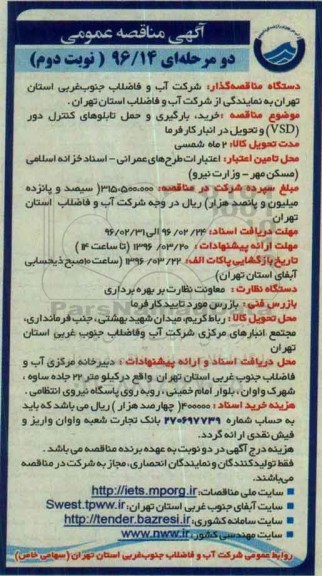 آگهی مناقصه عمومی
دو مرحله‌ای ۹۶/۱۴ ( نوبت دوم)
دستگاه مناقصه‌گذار: شرکت آب و فاضلاب جنوب‌غربی استان
تهران به نمایندگی از شرکت آب و فاضلاب استان تهران.
موضوع مناقصه :خرید، بارگیری و حمل تابلوهای کنترل دور
(VSD) و تحویل در انبار کارفرما
مدت تحویل کالا: ۲ ماه شمسی
محل تامین اعتبار: اعتبارات طرح‌های عمرانی - اسناد خزانه اسلامی
(مسکن مهر - وزارت نیرو)
مبلغ سپرده شرکت در مناقصه: ۳۱۵،۵۰۰،۰۰۰( سیصد و پانزده
میلیون و پانصد هزار) ریال در وجه شرکت آب و فاضلاب استان
تهران
مهلت دریافت اسناد: ۹۶/۰۲/۲۴ الی ۹۶/۰۲/۳۱
مهلت ارائه پیشنهادات : ۱۳۹۶/۰۳/۲۰ (تا ساعت ۱۴ )
تاریخ بازگشایی پاکات الف: ۱۳۹۶/۰۳/۲۲ (ساعت ۱۰صبح ذیحسابی
آبفای استان تهران)
دستگاه نظارت : معاونت نظارت بر بهره برداری
بازرس فنی: بازرس مورد تایید کارفرما
محل تحویل کالا : رباط کریم، میدان شهید بهشتی، جنب فرمانداری،
مجتمع انبارهای مرکزی شرکت آب وفاضلاب جنوب غربی استان
تهران
محل دریافت اسناد و ارائه پیشنهادات : دبیرخانه مرکزی آب و
فاضلاب جنوب غربی استان تهران واقع در کیلو متر ۲۲ جاده ساوه ،
شهرک واوان ، بلوار امام خمینی ، روبه روی پاسگاه نیروی انتظامی .
هزینه خرید اسناد : ۴۰۰۰۰۰( چهارصد هزار ) ریال می باشد که باید
به حساب شماره ۲۷۰۶۹۷۷۳۹ بانک تجارت شعبه واوان واریز و
فیش نقدی ارائه گردد.
هزینه درج آگهی در دو نوبت به عهده برنده مناقصه می باشد .
فقط تولیدکنندگان و نمایندگان انحصاری، مجاز به شرکت در مناقصه
می‌باشند.
سایت ملی مناقصات: http://iets.mporg.ir
سایت آبفای جنوب غربی استان تهران: Swest.tpww.ir
سایت سامانه کشوری: http://tender.bazresi.ir
سایت مهندسی کشور: www.nww.ir
روابط عمومی شرکت آب و فاضلاب جنوب‌غربی استان تهران (سهامی خاص)